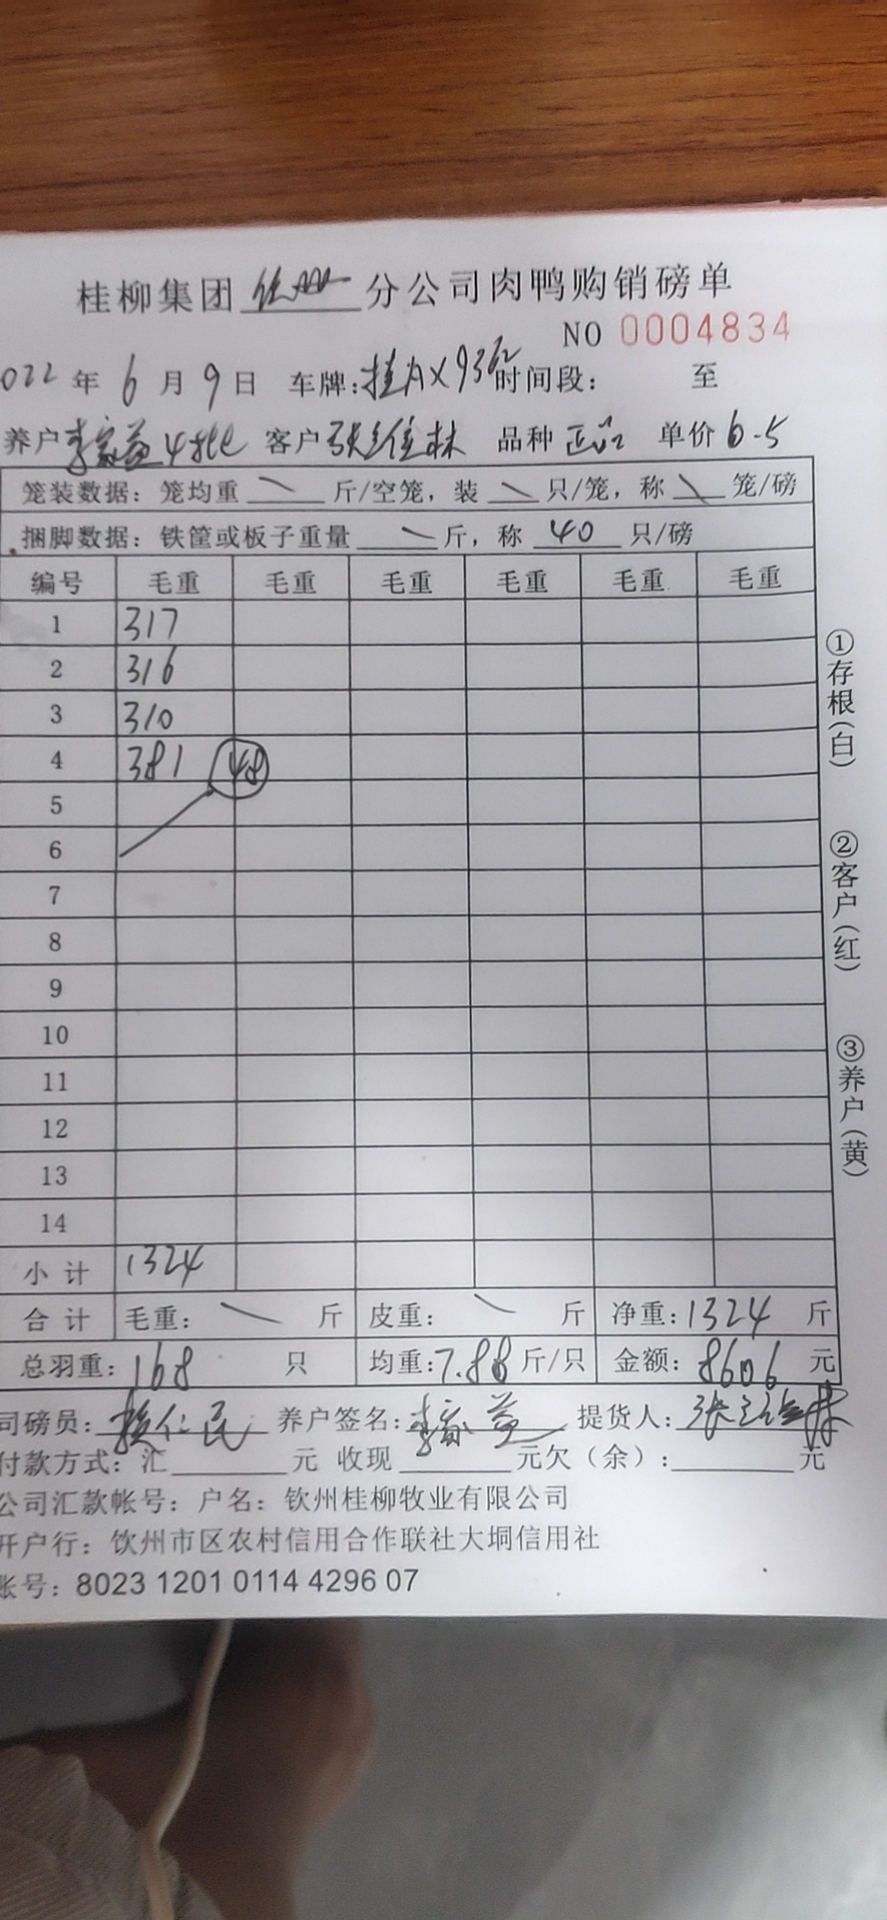 桂柳集团 钦州 分公司肉鸭购销磅单
NO 0004834
022 年 6 月 9 日 车牌: 时间段： 至
养户 李家益 4批 客户 品种 正品 单价 6.5
笼装数据：笼均重 斤/空笼，装 只/笼，称 笼/磅
捆脚数据：铁筐或板子重量 斤，称 40 只/磅
编号 毛重 毛重 毛重 毛重 毛重 毛重
1 317
2 316
3 310
4 381 48
5
6
7
8
9
10
11
12
13
14
小 计 1324
合 计 毛重： 斤 皮重： 斤 净重：1324 斤
总羽重：168 只 均重：7.88 斤/只 金额：8606 元
司磅员： 养户签名：李家益 提货人：
付款方式：汇 元 收现 元欠（余）： 元
公司汇款帐号：户名：钦州桂柳牧业有限公司
开户行：饮州市区农村信用合作联社大垌信用社
账号：8023 1201 0114 4296 07
①存根（白）
②客户（红）
③养户（黄）